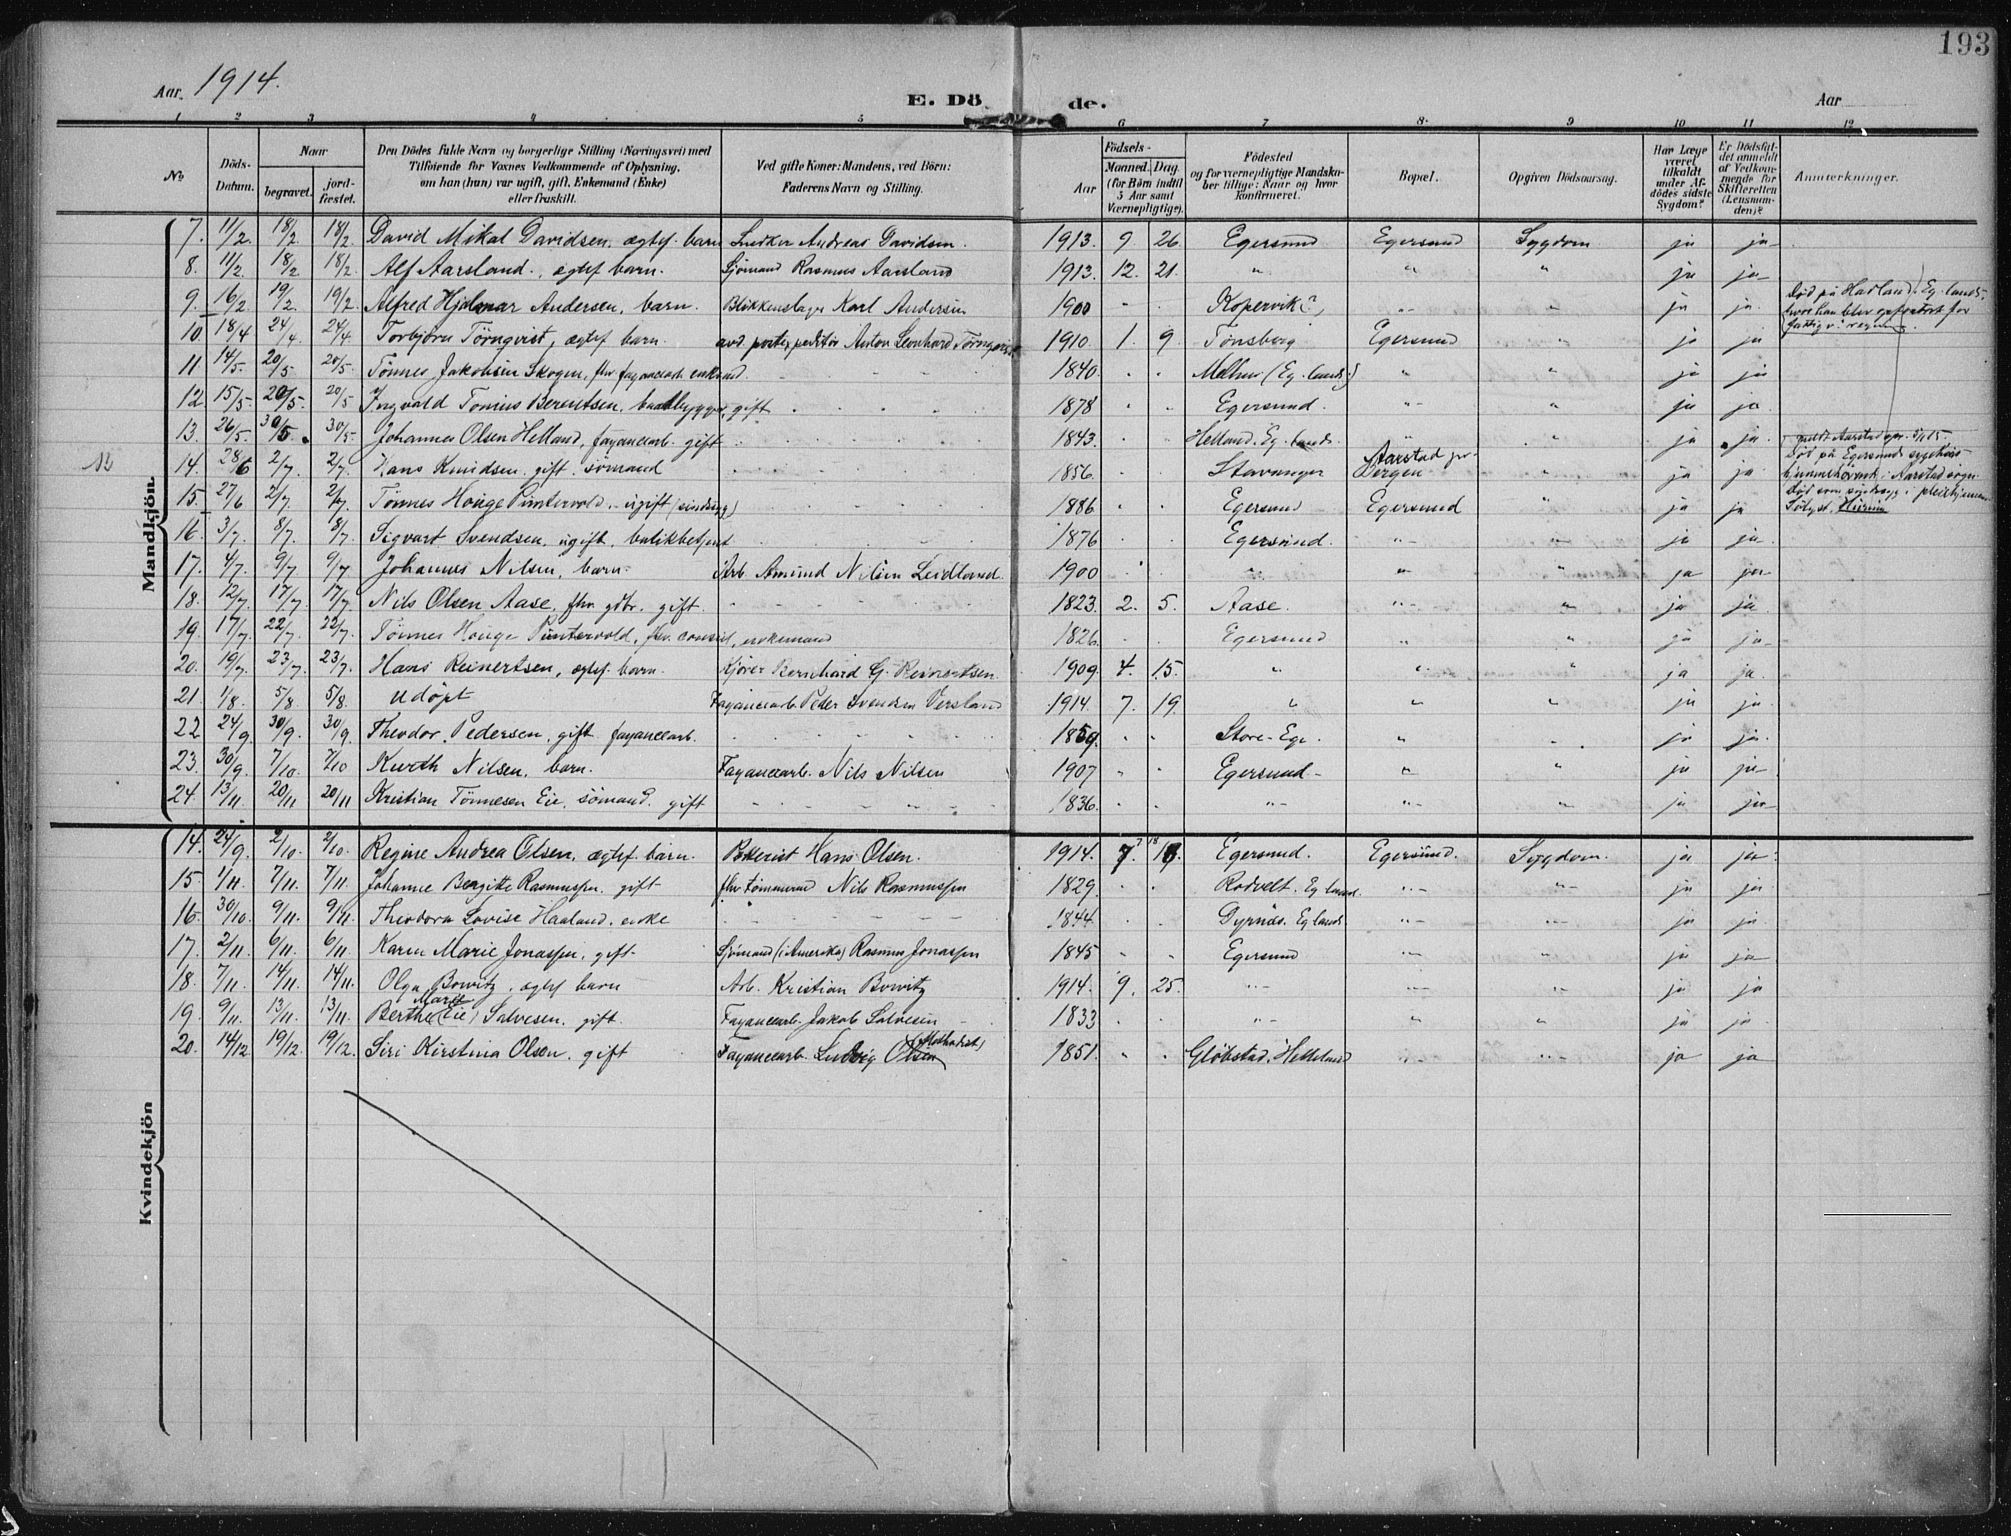 193
Aar. 1914.
E. Dö de.
Aar
1 2 3 4 5 6 7 8. 9 10 11 12
No
Döds-Datum.
Naar
begravet. jord-fæstet.
Den Dödes fulde Navn og borgerlige Stilling (Næringsvei) med
Tilföiende for Voxnes Vedkommende af Oplysning,
om han (hun) var ugift, gift, Enkemand (Enke)
eller fraskilt.
Ved gifte Koner: Mandens, ved Börn:
Faderens Navn og Stilling.
Födsels-
Aar Maaned. Dag.
(for Börn indtil
5 Aar samt
Værnepligtige).
Födested
og for værnepligtige Mandska-
ber tillige: Naar og hvor
konfirmeret.
Bopæl.
Opgiven Dödsaarsag.
Har Læge
været
tilkaldt
under Af-
dödes sidste
Sygdom?
Er Dödsfal-
det anmeldt
af Vedkom-
mende for
Skifteretten
(Lensman-
den)?
Anmærkninger.
Mandkjön.
7. 11/2 18/2 18/2 David Mikal Davidsen, ægtef. barn Snedker Andreas Davidsen. 1913. 9. 26. Egersund Egersund Sygdom ja ja
8. 11/2 18/2 18/2 Alf Aarsland, ægtef barn. Sjömand Rasmus Aarsland 1913. 12. 21. " " " ja ja
9. 16/2 19/2 19/2 Alfred Hjalmar Andersen, barn. Blikkenslager Karl Andersen 1900 Kopervik?, " " ja ja. Död på
10. 18/4 24/4 24/4 Torbjörn Törnqvist, ægtef barn. Anton Leonhard Törnqvist 1910. 1. 9. Tönsberg Egersund " ja ja
11. 14/5 20/5 20/5 Tönnes Jakobsen Skogen, fhv fayancearb. enkemd. 1840. (Eg. lands.) " " ja ja
12 15/5 20/5. 20/5 Ingvald Tomius Berentsen, baadbygger, gift 1878 Egersund. " " ja ja
13. 26/5. 30/5. 30/5. Johannes Olsen Helland, fayancearb. gift 1843. Helland. Eg. lands. " " ja ja.
14. 28/6 2/7. 2/7. Hans Knudsen. gift. sömand 1856. Stavanger Bergen " ja ja Död på Egersunds sygehus
15. 27/6 2/7. 2/7. Tönnes Houge Puntervold. ugift 1886 Egersund Egersund " ja ja
16. 3/7. 8/7. 8/7. Sigvart Svendsen, ugift, butikbetjent 1876 Egersund. " " ja ja.
17. 4/7. 9/7. 9/7 Johannes Nilsen, barn. Arb. Amund Nilsen Leidland. 1900 " " " ja ja
18. 12/7. 17/7. 17/7. Nils Olsen Aase. fhv. gbr. gift. 1823. 2. 5. Aase. " " ja ja.
19. 17/7. 22/7. 22/7. Tönnes Houge Puntervold, fhv. consul, enkemand 1826. Egersund " " ja ja
20. 19/7. 23/7. 23/7. Hans Reinertsen, ægtef. barn. Kjörer Bernhard G. Reinertsen 1909. 4. 15. " " " ja ja.
21. 1/8. 5/8 5/8. Udöpt Fayancearb. Peder Svendsen Versland 1914. 7. 19. " " " ja ja
22 24/9. 30/9. 30/9. Theodor Pedersen, gift fayancearb. 1859. Store-Ege. " " ja ja.
23. 30/9. 7/10. 7/10 Kurth Nilsen, barn. Fayancearb. Nils Nilsen 1907 Egersund " " ja ja
24. 13/11. 20/11 20/11 Kristian Tönnesen Eie, sömand. gift 1836. " " " ja ja
Kvindekjön
14. 24/9. 2/10. 2/10. Regine Andrea Olsen, ægtef. barn. Hans Olsen. 1914. 7. 18. Egersund. Egersund. Sygdom. ja ja
15. 1/11. 7/11. 7/11. Johanne Bergitte Rasmussen. gift fhv tömmermd Nils Rasmussen 1829. Rodvelt. Eg lands. " " ja ja
16. 30/10. 9/11. 9/11. Theodora Lovise Haaland. enke 1844. Gyrnäs. Eg lands. " " ja ja.
17. 2/11. 6/11. 6/11. Karen Marie Jonassen, gift. Sjömand (i Amerika) Rasmus Jonassen 1845 Egersund " " ja ja
18. 7/11. 14/11 14/11. Olga Bowitz, ægtef barn Arb. Kristian Bowitz 1914. 9. 25. " " " ja ja
19. 9/11. 13/11 13/11. Berthe Marte (Eie) Salvesen. gift. Fayancearb. Jakob Salvesen 1833 " " " ja ja.
20. 14/12 19/12. 19/12. Siri Kirstina Olsen. gift Fayancearb. Ludvig Olsen (Methodist) 1851. Glöbstad. Helleland " " ja ja